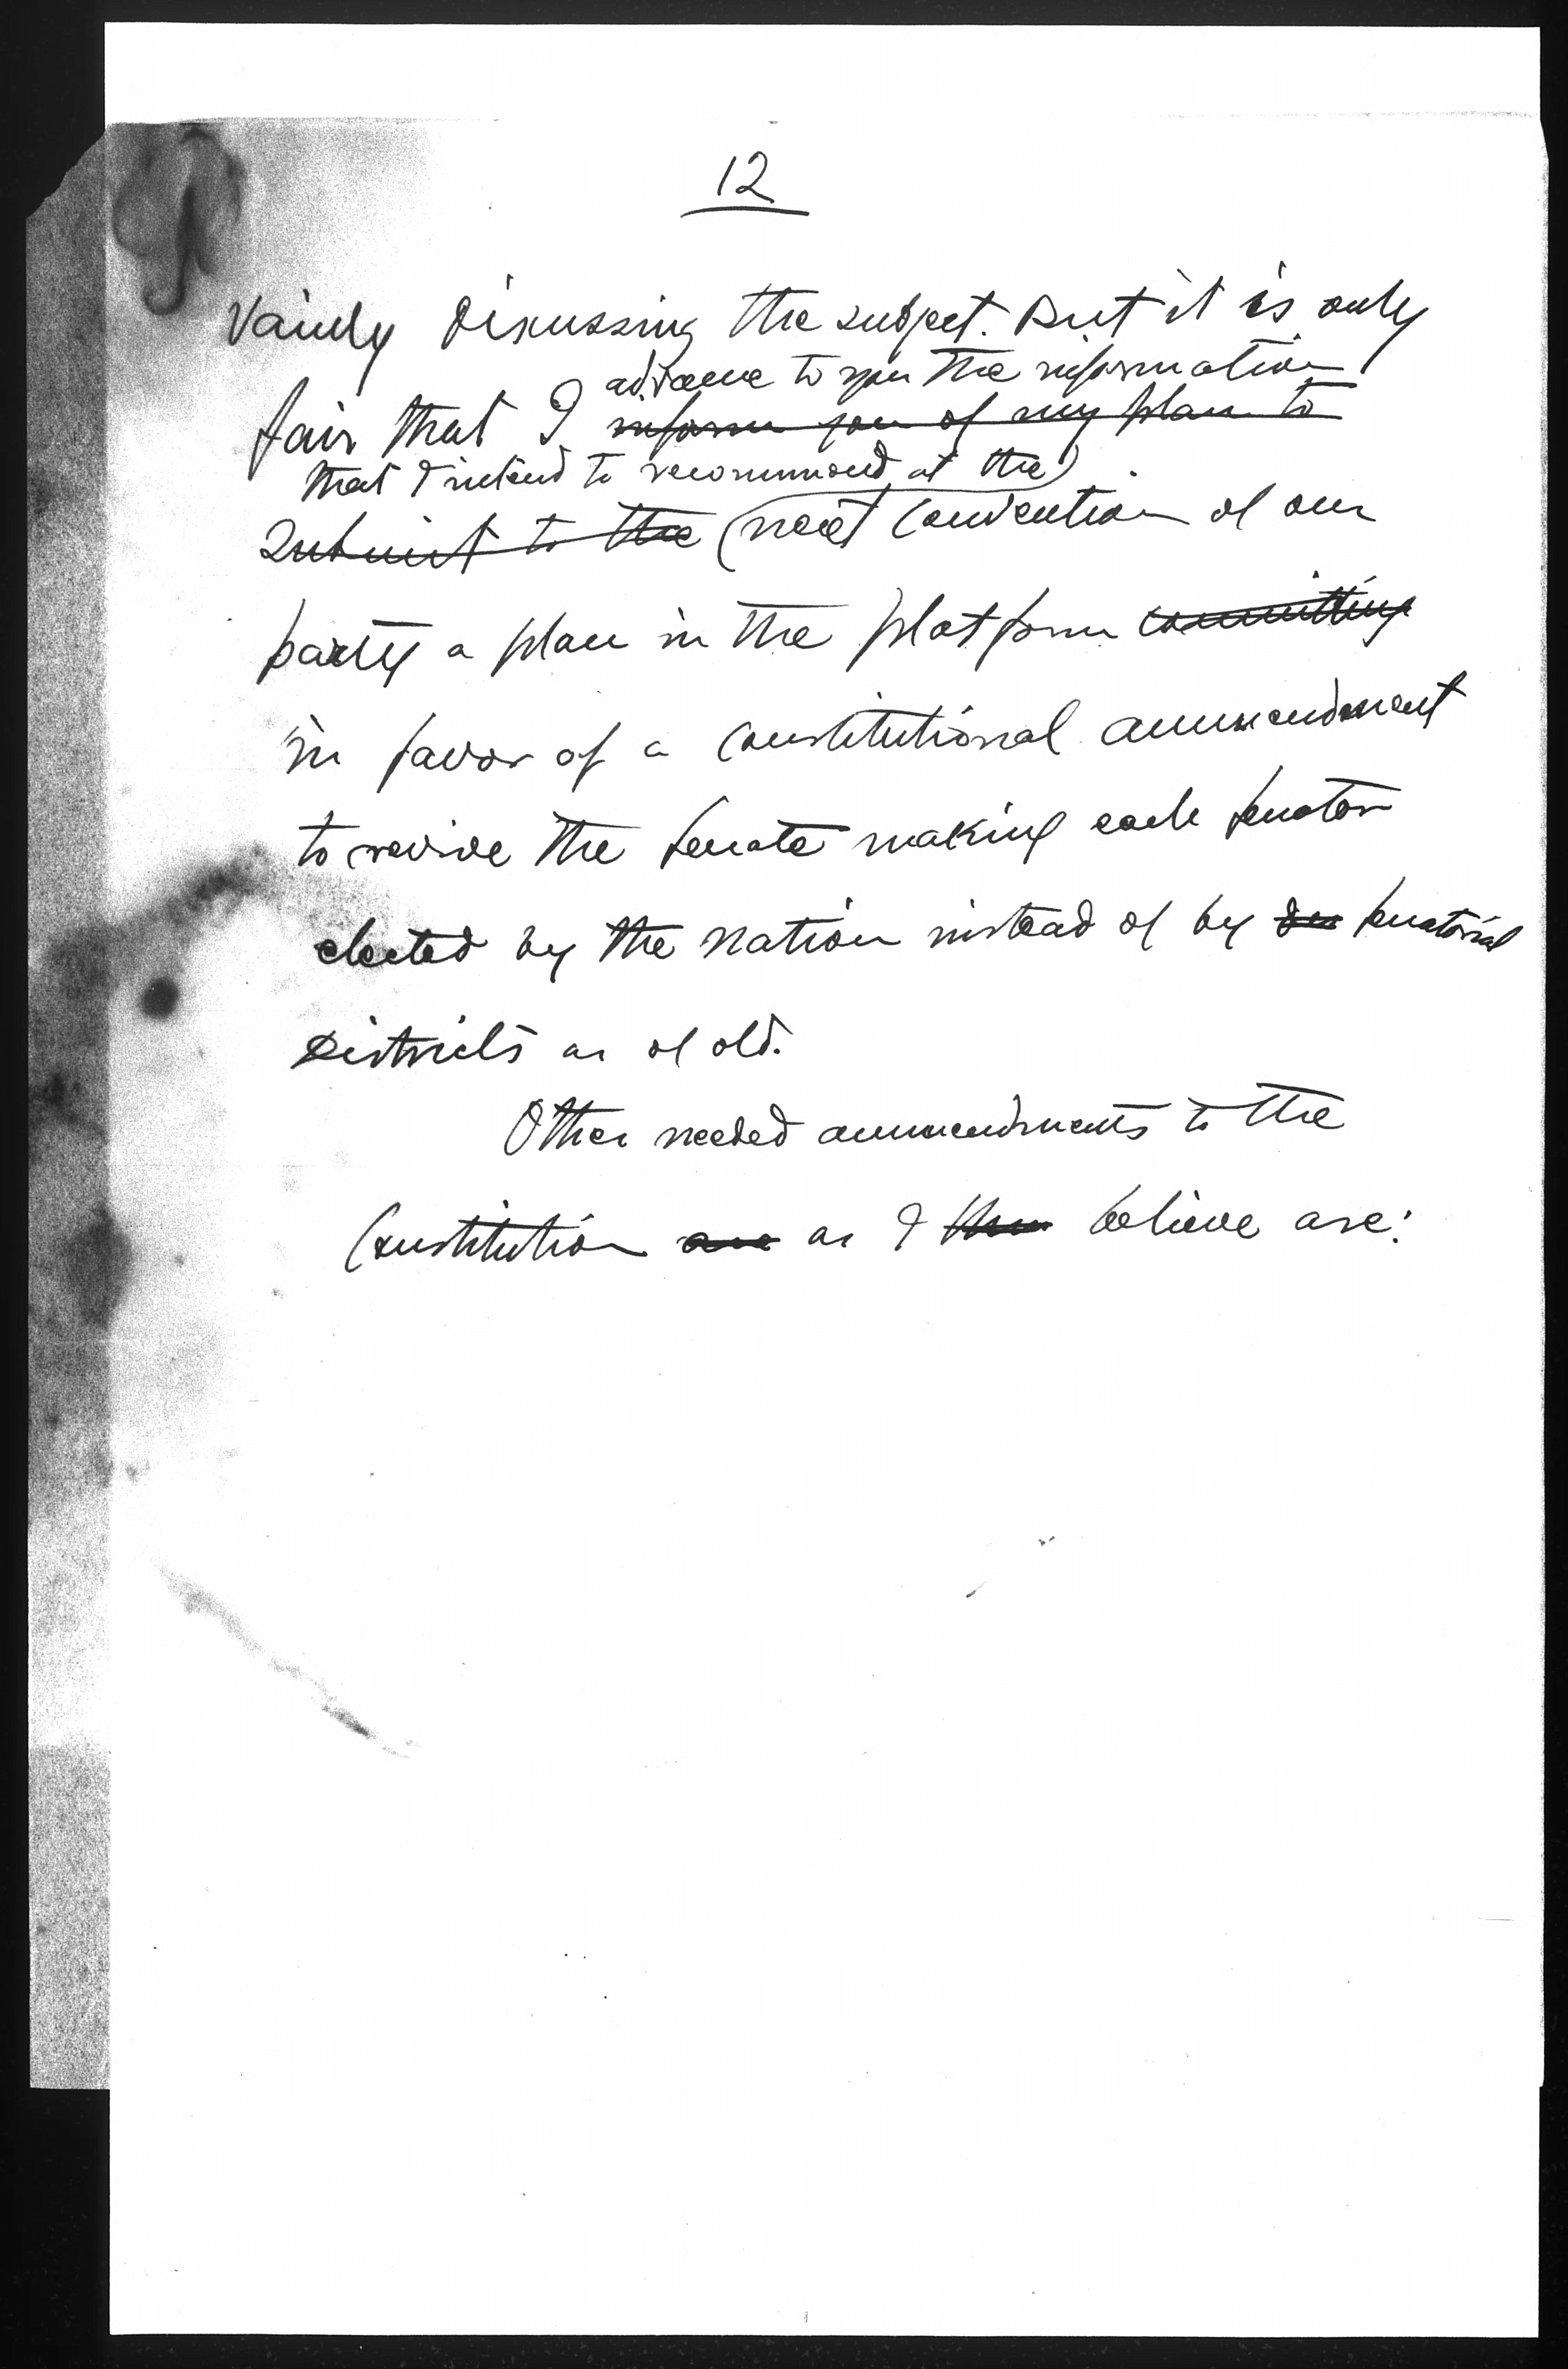 12
Vainly discussing the subject. But it is only
advance to you the information
fair that I inform you of my plan to
that I intend to recommend at the
submit to the next convention of our
party a plan in the platform committing
in favor of a constitutional ammendment
to revive the Senate making each Senator
elected by the nation instead of by Senatorial
districts as of old.
Other needed ammendments to the
Constitution are as I believe are: